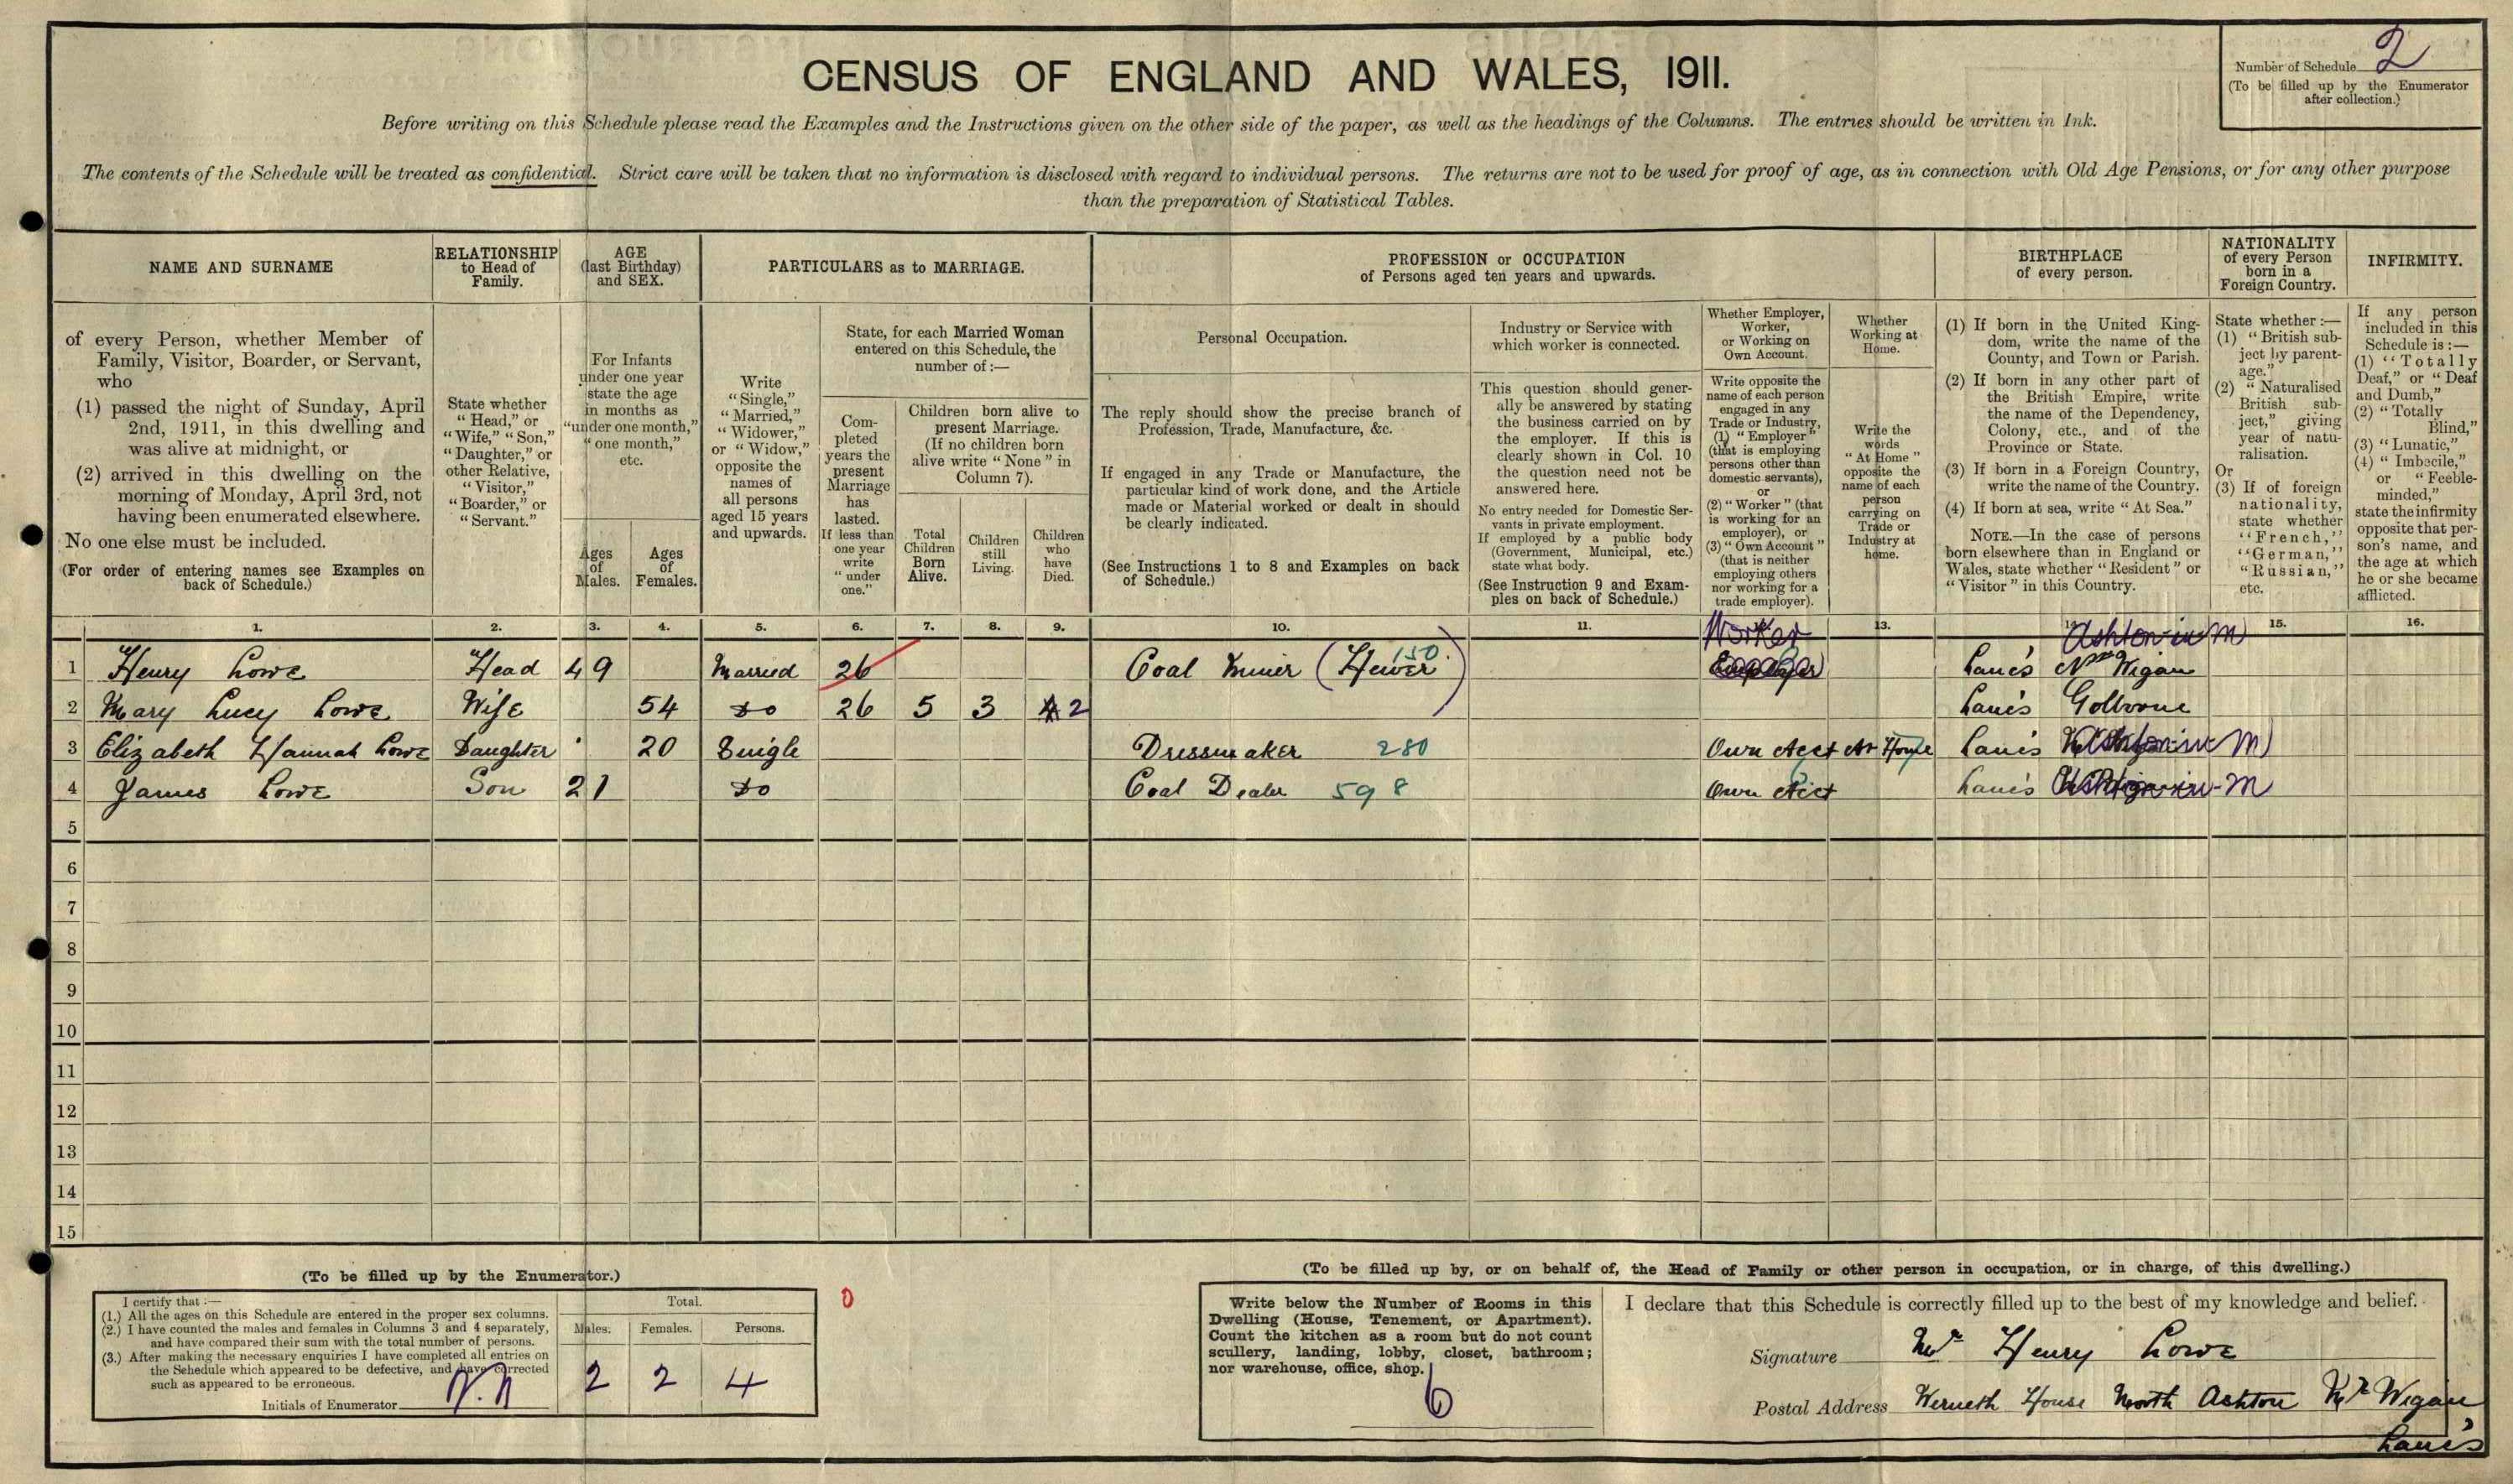 Number of Schedule 2
(To be filled up by the Enumerator
after collection.)
CENSUS OF ENGLAND AND WALES, 1911.
Before writing on this Schedule please read the Examples and the Instructions given on the other side of the paper, as well as the headings of the Columns. The entries should be written in Ink.
The contents of the Schedule will be treated as confidential. Strict care will be taken that no information is disclosed with regard to individual persons. The returns are not to be used for proof of age, as in connection with Old Age Pensions, or for any other purpose
than the preparation of Statistical Tables.
NAME AND SURNAME
of every Person, whether Member of
Family, Visitor, Boarder, or Servant,
who
(1) passed the night of Sunday, April
2nd, 1911, in this dwelling and
was alive at midnight, or
(2) arrived in this dwelling on the
morning of Monday, April 3rd, not
having been enumerated elsewhere.
No one else must be included.
(For order of entering names see Examples on
back of Schedule.)
RELATIONSHIP
to Head of
Family.
State whether
"Head," or
"Wife," "Son,"
"Daughter," or
other Relative,
"Visitor,"
"Boarder," or
"Servant."
AGE
(last Birthday)
and SEX.
For Infants
under one year
state the age
in months as
"under one month,"
"one month,"
etc.
Ages
of
Males.
Ages
of
Females.
PARTICULARS as to MARRIAGE.
Write
"Single,"
"Married,"
"Widower,"
or "Widow,"
opposite the
names of
all persons
aged 15 years
and upwards.
State, for each Married Woman
entered on this Schedule, the
number of :—
Com-
pleted
years the
present
Marriage
has
lasted.
If less than
one year
write
"under
one."
Children born alive to
present Marriage.
(If no children born
alive write "None" in
Column 7).
Total
Children
Born
Alive.
Children
still
Living.
Children
who
have
Died.
PROFESSION or OCCUPATION
of Persons aged ten years and upwards.
Personal Occupation.
The reply should show the precise branch of
Profession, Trade, Manufacture, &c.
If engaged in any Trade or Manufacture, the
particular kind of work done, and the Article
made or Material worked or dealt in should
be clearly indicated.
(See Instructions 1 to 8 and Examples on back
of Schedule.)
Industry or Service with
which worker is connected.
This question should gener-
ally be answered by stating
the business carried on by
the employer. If this is
clearly shown in Col. 10
the question need not be
answered here.
No entry needed for Domestic Ser-
vants in private employment.
If employed by a public body
(Government, Municipal, etc.)
state what body.
(See Instruction 9 and Exam-
ples on back of Schedule.)
Whether Employer,
Worker,
or Working on
Own Account.
Write opposite the
name of each person
engaged in any
Trade or Industry,
(1) "Employer"
(that is employing
persons other than
domestic servants),
or
(2) "Worker" (that
is working for an
employer), or
(3) "Own Account"
(that is neither
employing others
nor working for a
trade employer).
Whether
Working at
Home.
Write the
words
"At Home"
opposite the
name of each
person
carrying on
Trade or
Industry at
home.
BIRTHPLACE
of every person.
(1) If born in the United King-
dom, write the name of the
County, and Town or Parish.
(2) If born in any other part of
the British Empire, write
the name of the Dependency,
Colony, etc., and of the
Province or State.
(3) If born in a Foreign Country,
write the name of the Country.
(4) If born at sea, write "At Sea."
NOTE.—In the case of persons
born elsewhere than in England or
Wales, state whether "Resident" or
"Visitor" in this Country.
NATIONALITY
of every Person
born in a
Foreign Country.
State whether :—
(1) "British sub-
ject by parent-
age."
(2) "Naturalised
British sub-
ject," giving
year of natu-
ralisation.
Or
(3) If of foreign
nationality,
state whether
"French,"
"German,"
"Russian,"
etc.
INFIRMITY.
If any person
included in this
Schedule is :—
(1) "Totally
Deaf," or "Deaf
and Dumb,"
(2) "Totally
Blind,"
(3) "Lunatic,"
(4) "Imbecile,"
or "Feeble-
minded,"
state the infirmity
opposite that per-
son's name, and
the age at which
he or she became
afflicted.
1. 2. 3. 4. 5. 6. 7. 8. 9. 10. 11. 13. 15. 16.
Worker Ashton in M
1 Henry Lowe Head 49 Married 26 Coal Miner (Hewer) 150 Lancs Nr Wigan
2 Mary Lucy Lowe Wife 54 do 26 5 3 2 Lancs Golborne
3 Elizabeth Hannah Lowe Daughter 20 Single Dressmaker 280 Own Acct At Home Lancs Ashton in M
4 James Lowe Son 21 do Coal Dealer 598 Own Acct Lancs Ashton-in-M
5
6
7
8
9
10
11
12
13
14
15
(To be filled up by the Enumerator.)
I certify that :—
(1.) All the ages on this Schedule are entered in the proper sex columns.
(2.) I have counted the males and females in Columns 3 and 4 separately,
and have compared their sum with the total number of persons.
(3.) After making the necessary enquiries I have completed all entries on
the Schedule which appeared to be defective, and have corrected
such as appeared to be erroneous.
Initials of Enumerator
Total.
Males. Females. Persons.
2 2 4
0
(To be filled up by, or on behalf of, the Head of Family or other person in occupation, or in charge, of this dwelling.)
Write below the Number of Rooms in this
Dwelling (House, Tenement, or Apartment).
Count the kitchen as a room but do not count
scullery, landing, lobby, closet, bathroom;
nor warehouse, office, shop.
6
I declare that this Schedule is correctly filled up to the best of my knowledge and belief.
Signature Mr Henry Lowe
Postal Address Werneth House North Ashton Nr Wigan
Lancs